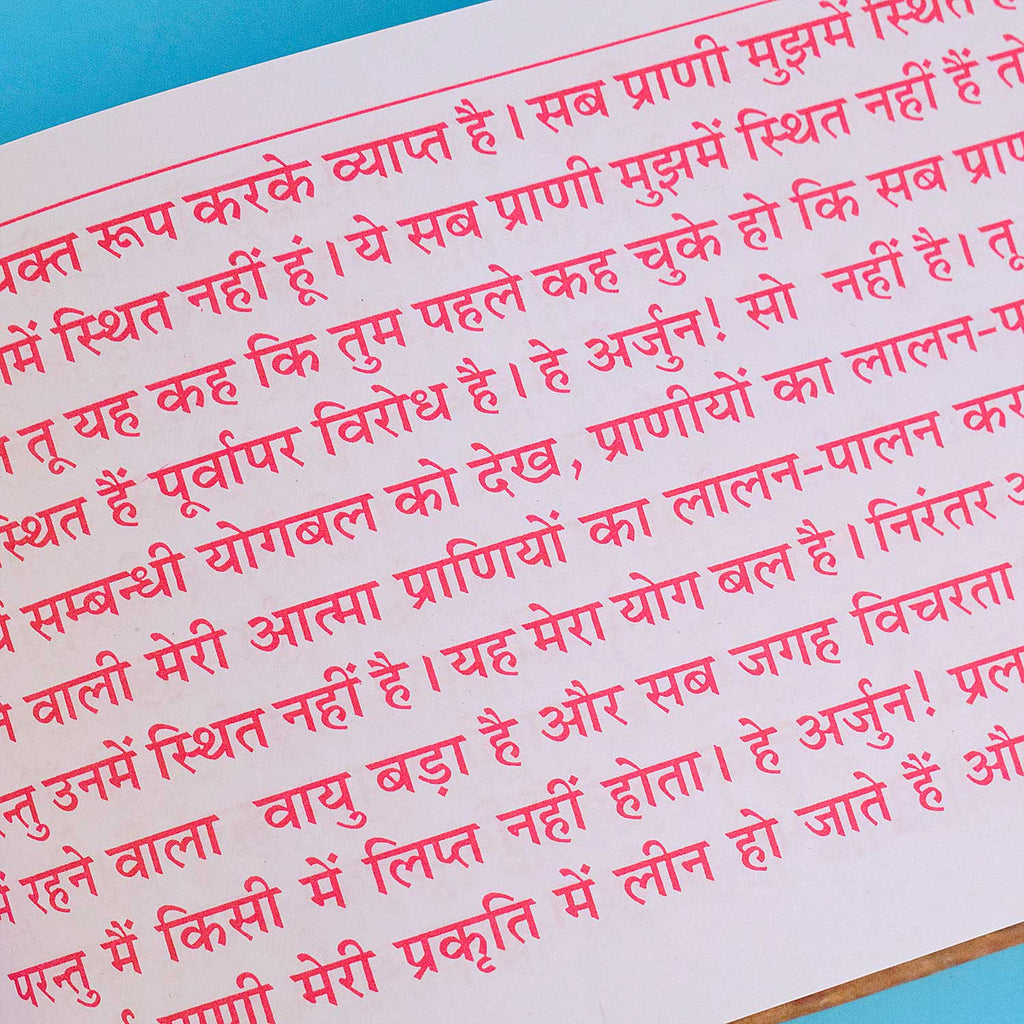 रूप करके व्याप्त है। सब प्राणी मुझमें स्थित
में स्थित नहीं हूं। ये सब प्राणी मुझमें स्थित नहीं हैं
तू यह कह कि तुम पहले कह चुके हो कि सब
स्थित हैं पूर्वापर विरोध है। हे अर्जुन! सो नहीं है। तू
सम्बन्धी योगबल को देख, प्राणीयों का लालन-
वाली मेरी आत्मा प्राणियों का लालन-पालन
उनमें स्थित नहीं है। यह मेरा योग बल है। निरंतर
रहने वाला वायु बड़ा है और सब जगह विचरता
परन्तु मैं किसी में लिप्त नहीं होता। हे अर्जुन!
प्राणी मेरी प्रकृति में लीन हो जाते हैं